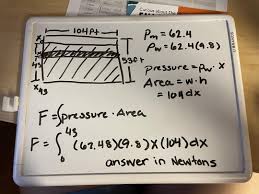 104ft
x
43
43
53ft
x
ρm = 62.4
ρw = 62.4(9.8)
pressure = ρw · x
Area = w·h
= 104dx
F = ∫pressure · Area
F = ∫₀⁴³ (62.48)(9.8) x (104) dx
answer in Newtons